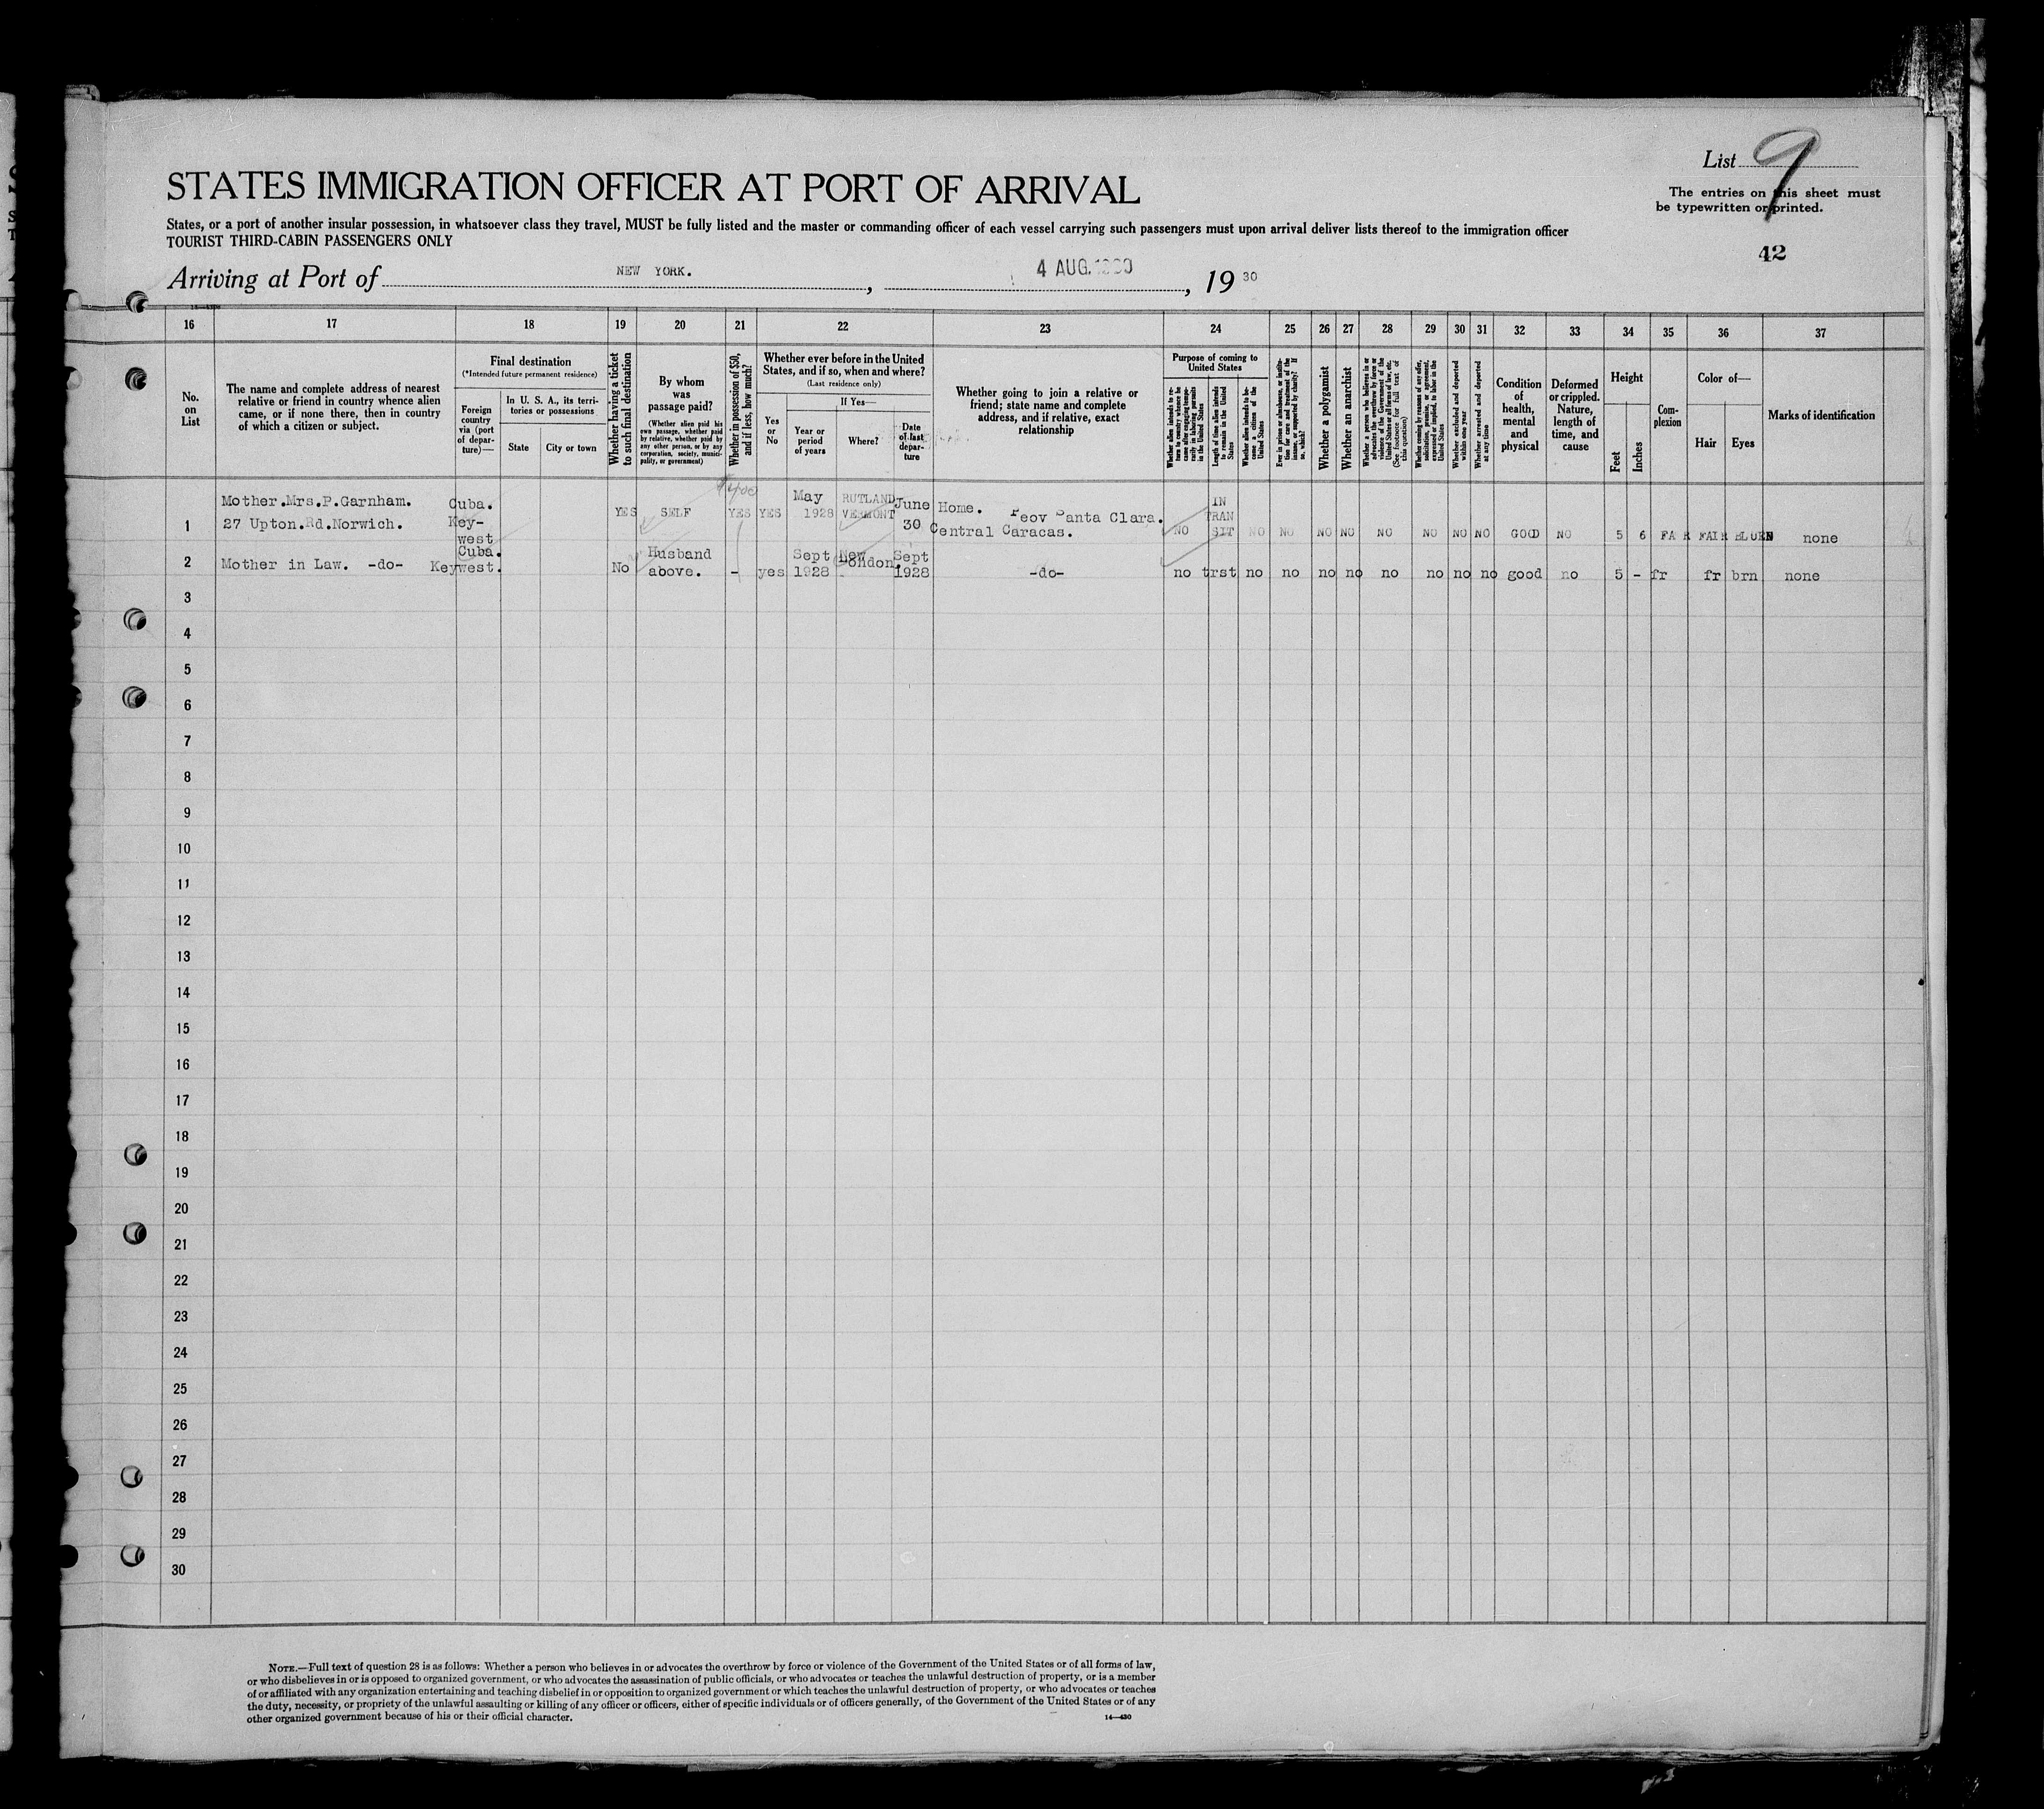 List 9
STATES IMMIGRATION OFFICER AT PORT OF ARRIVAL
The entries on this sheet must
be typewritten or printed.
States, or a port of another insular possession, in whatsoever class they travel, MUST be fully listed and the master or commanding officer of each vessel carrying such passengers must upon arrival deliver lists thereof to the immigration officer
TOURIST THIRD-CABIN PASSENGERS ONLY
42
Arriving at Port of NEW YORK. , 4 AUG. 1930 , 19 30
16 17 18 19 20 21 22 23 24 25 26 27 28 29 30 31 32 33 34 35 36 37
No.
on
List
The name and complete address of nearest
relative or friend in country whence alien
came, or if none there, then in country
of which a citizen or subject.
Final destination
(*Intended future permanent residence)
Foreign
country
via (port
of depar-
ture)—
In U. S. A., its terri-
tories or possessions
State
City or town
Whether having a ticket
to such final destination
By whom
was
passage paid?
(Whether alien paid his
own passage, whether paid
by relative, whether paid by
any other person, or by any
corporation, society, munici-
pality, or government)
Whether in possession of $50,
and if less, how much?
Whether ever before in the United
States, and if so, when and where?
(Last residence only)
Yes
or
No
If Yes—
Year or
period
of years
Where?
Date
of last
depar-
ture
Whether going to join a relative or
friend; state name and complete
address, and if relative, exact
relationship
Purpose of coming to
United States
Whether alien intends to re-
turn to country whence he
came after engaging tempo-
rarily in laboring pursuits
in the United States
Length of time alien intends
to remain in the United
States
Whether alien intends to be-
come a citizen of the
United States
Ever in prison or almshouse, or institu-
tion for care and treatment of the
insane, or supported by charity? If
so, which?
Whether a polygamist
Whether an anarchist
Whether a person who believes in or
advocates the overthrow by force or
violence of the Government of the
United States or all forms of law, etc.
(See footnote for full text of
this question)
Whether coming by reasons of any offer,
solicitation, promise, or agreement,
expressed or implied, to labor in the
United States
Whether excluded and deported
within one year
Whether arrested and deported
at any time
Condition
of
health,
mental
and
physical
Deformed
or crippled.
Nature,
length of
time, and
cause
Height
Feet
Inches
Com-
plexion
Color of—
Hair
Eyes
Marks of identification
1
Mother.Mrs.P.Garnham.
27 Upton.Rd.Norwich.
Cuba.
Key-
west
YES
SELF
$400
YES
YES
May
1928
RUTLAND
VERMONT
June
30
Home. Santa Clara.
Central Caracas.
NO
IN
TRAN
SIT
NO NO NO NO NO NO NO NO GOOD NO 5 6 FAIR FAIR none
2
Mother in Law. -do-
Cuba.
Keywest.
No
Husband
above.
-
yes
Sept
1928
New
London.
Sept
1928
-do-
no trst no no no no no no no no good no 5 - fr fr brn none
3
4
5
6
7
8
9
10
11
12
13
14
15
16
17
18
19
20
21
22
23
24
25
26
27
28
29
30
NOTE.—Full text of question 28 is as follows: Whether a person who believes in or advocates the overthrow by force or violence of the Government of the United States or of all forms of law,
or who disbelieves in or is opposed to organized government, or who advocates the assassination of public officials, or who advocates or teaches the unlawful destruction of property, or is a member
of or affiliated with any organization entertaining and teaching disbelief in or opposition to organized government or which teaches the unlawful destruction of property, or who advocates or teaches
the duty, necessity, or propriety of the unlawful assaulting or killing of any officer or officers, either of specific individuals or of officers generally, of the Government of the United States or of any
other organized government because of his or their official character.
14—430